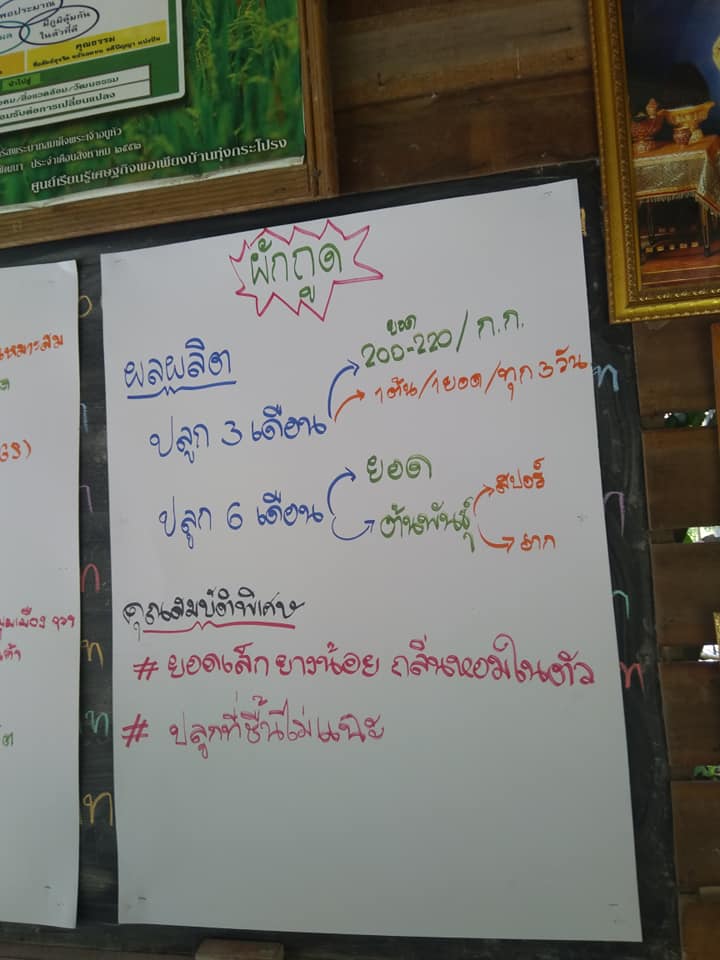 พอประมาณ
มีภูมิคุ้มกัน
ในตัวที่ดี
คุณธรรม
นำไปสู่
ศูนย์เรียนรู้เศรษฐกิจพอเพียงบ้านทุ่งกระโปรง
ผักกูด
ผลผลิต
ยอด
200-220/ก.ก.
ปลูก 3 เดือน
1ต้น/1ยอด/ทุก 3 วัน
ปลูก 6 เดือน
ยอด
ต้นพันธุ์
สปอร์
ราก
คุณสมบัติพิเศษ
# ยอดเล็ก ยางน้อย กลิ่นหอมในตัว
# ปลูกที่ชื้นไม่แฉะ